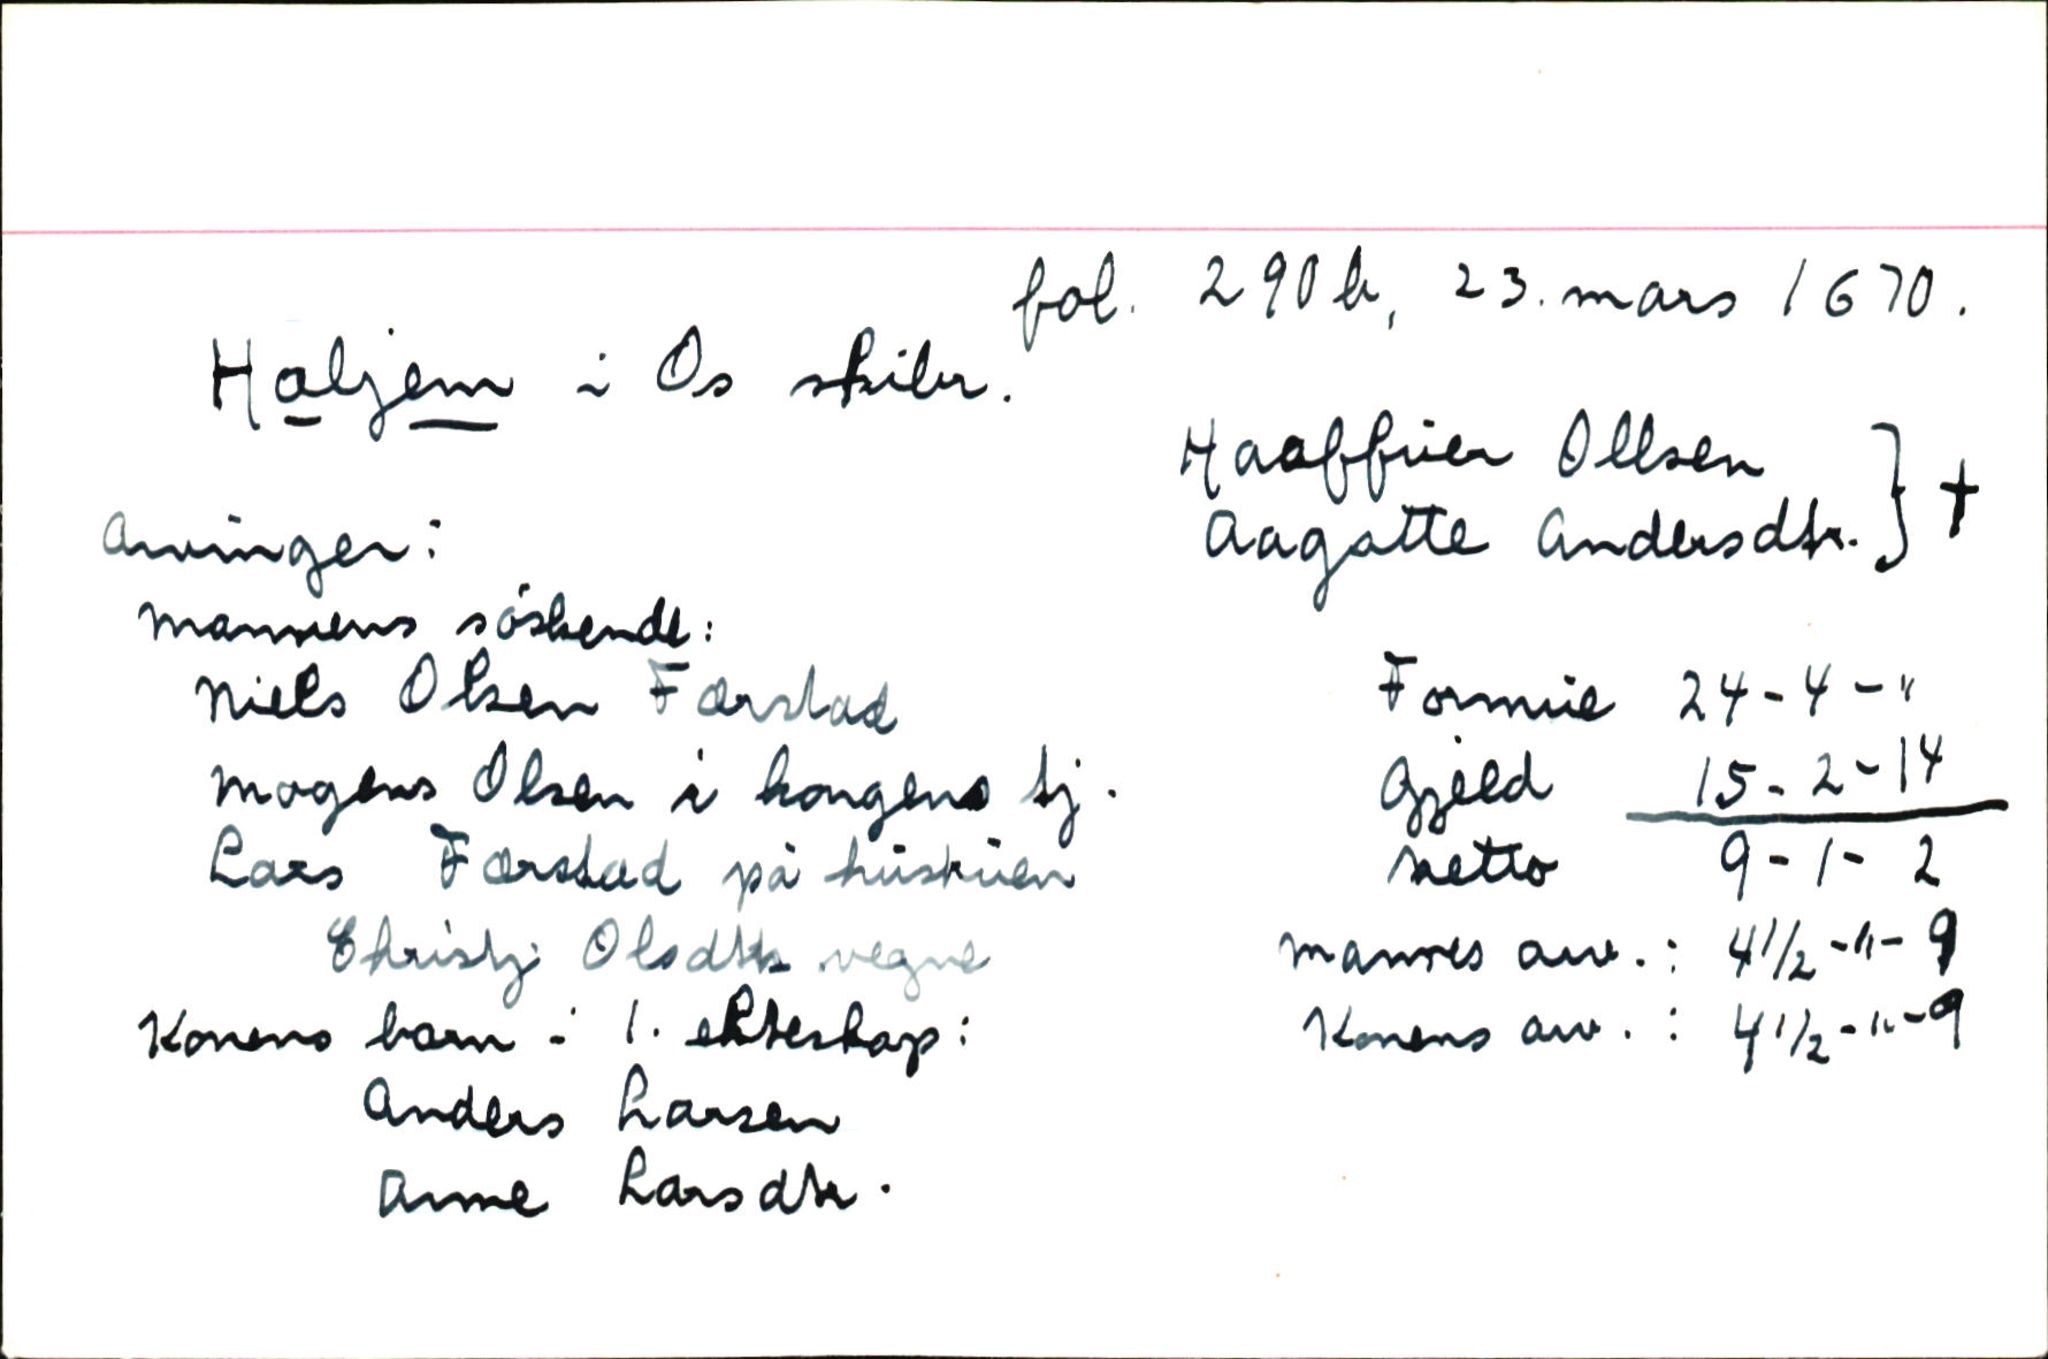 fol. 290 b, 23. mars 1670.
Haljem i Os skibr.
Haaffuer Ollsen
Aagatte Andersdtr. } †
Arvinger:
Mannens söskende:
Niels Olsen Færstad
Mogens Olsen i kongens tj.
Lars Færstad på hustruen
Christj Olsdtrs vegne
Konens barn i 1. ekteskap:
Anders Larsen
Anne Larsdtr.
Formue 24 - 4 - "
Gjeld 15 - 2 - 14
Netto 9 - 1 - 2
Mannes arv. : 4 1/2 - " - 9
Konens arv. : 4 1/2 - " - 9